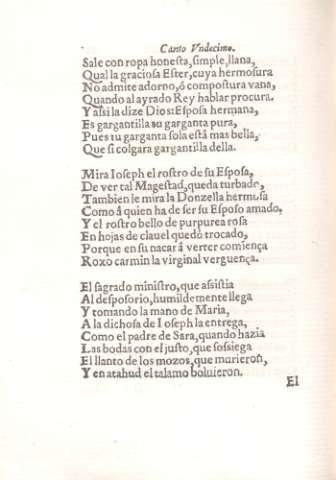 Canto Vndecimo.
Sale con ropa honesta, simple, llana,
Qual la graciosa Ester, cuya hermosura
No admite adorno, ó compostura vana,
Quando al ayrado Rey hablar procura.
Y assi la dize Dios: Esposa hermana,
Es gargantilla tu garganta pura,
Pues tu garganta sola està mas bella,
Que si colgara gargantilla della.
Mira Ioseph el rostro de su Esposa,
De ver tal Magestad, queda turbado,
Tambien le mira la Donzella hermosa
Como á quien ha de ser su Esposo amado,
Y el rostro bello de purpurea rosa
En hojas de clauel quedò trocado,
Porque en su nacar á verter comiença
Roxo carmin la virginal verguença.
El sagrado ministro, que assistia
Al desposorio, humildemente llega
Y tomando la mano de Maria,
A la dichosa de Ioseph la entrega,
Como el padre de Sara, quando hazia
Las bodas con el justo, que sossiega
El llanto de los mozos, que murieron,
Y en atahud el talamo boluieron.
El